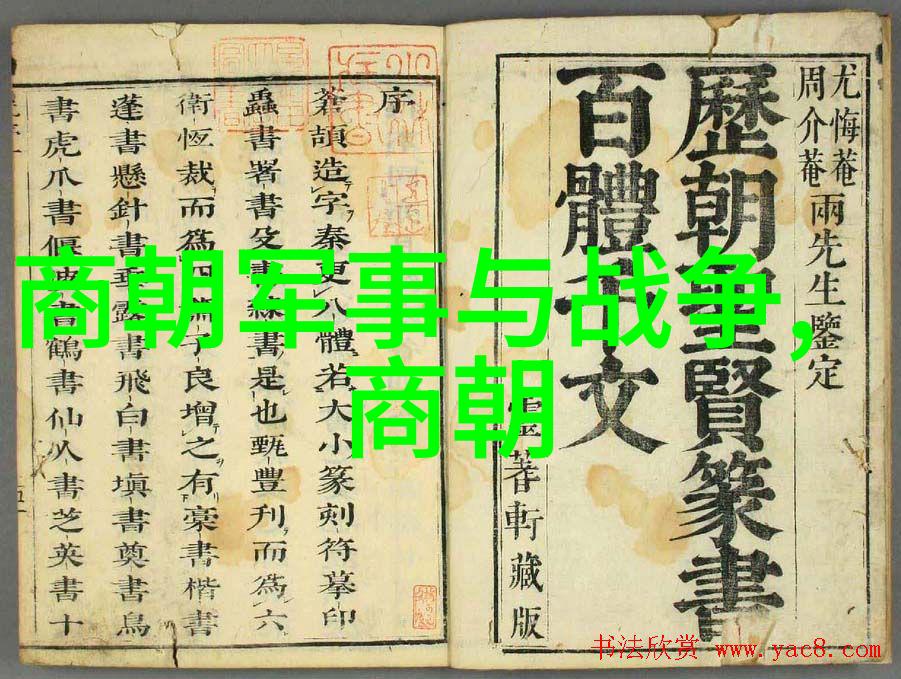 商朝军事与战争,
商朝
尤悔菴
周介菴
兩先生鑒定
歷朝聖賢篆書
百體千文
軒藏版
序
蒼頡造字秦更八體若大小篆刻符摹印
蟲書署書殳書隸書是也甄豐刋而為六
衛恆裁而為四子良增之有藁書楷書
蓬書懸針書垂露書飛白書塡書奠書鳥
書虎爪書偃波書鶴書仙人書芝英書十
书法欣赏 www.yac8.com